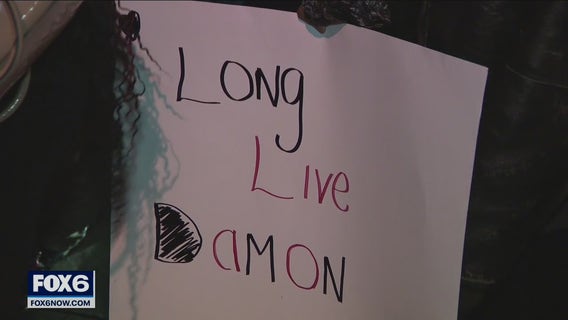 LONG
LIVE
DAMON
FOX6
FOX6NOW.COM